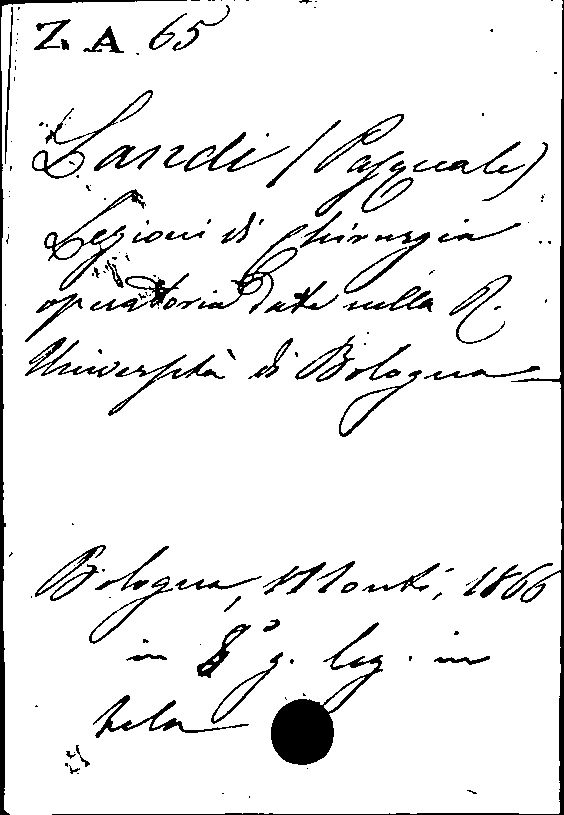 Z. A 65
Landi (Pasquale)
Lezioni di Chirurgia
operatoria date nella R.
Università di Bologna
Bologna, Monti, 1866
in 8° g. leg. in
tela